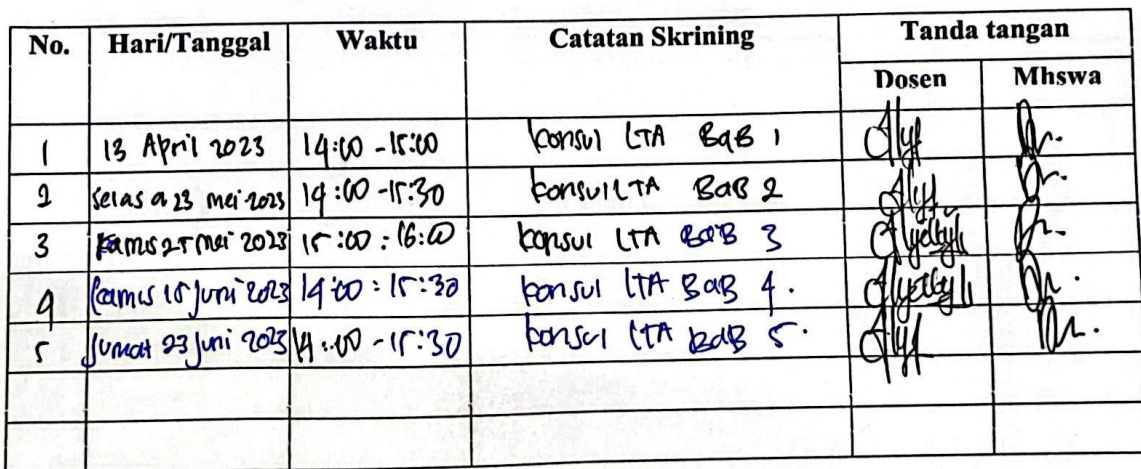 No. Hari/Tanggal Waktu Catatan Skrining Tanda tangan
Dosen Mhswa
1 13 April 2023 14:00 - 15:00 konsul LTA BaB 1
2 selasa 23 mei 2023 14:00 - 15:30 konsul LTA BaB 2
3 kamis 25 mei 2023 15:00 : 16:00 konsul LTA BaB 3
4 kamis 15 Juni 2023 14:00 : 15:30 konsul LTA BaB 4.
5 Jumat 23 Juni 2023 14:00 - 15:30 konsul LTA BaB 5.